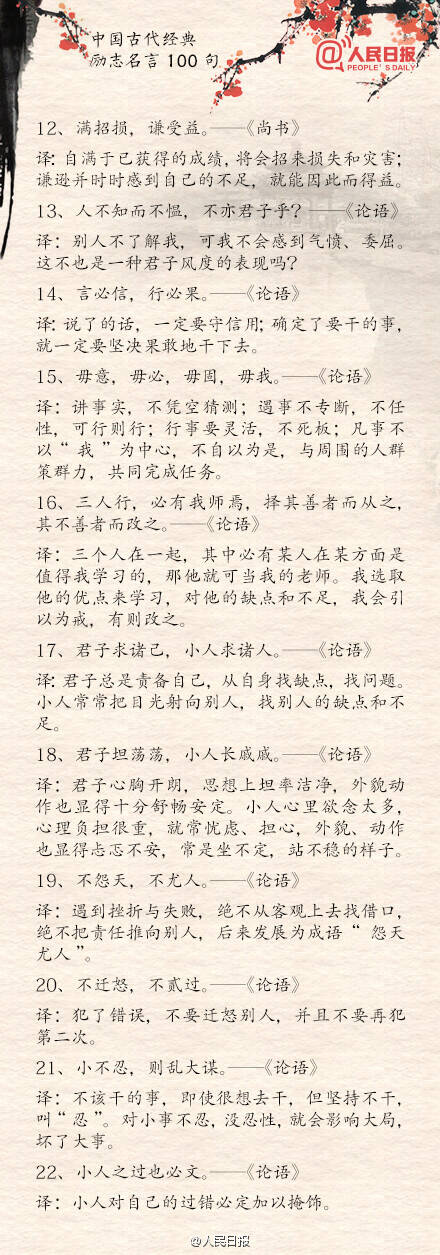 中国古代经典
励志名言100句
@人民日报
PEOPLE'S DAILY
12、满招损，谦受益。——《尚书》
译：自满于已获得的成绩，将会招来损失和灾害；
谦逊并时时感到自己的不足，就能因此而得益。
13、人不知而不愠，不亦君子乎？——《论语》
译：别人不了解我，可我不会感到气愤、委屈。
这不也是一种君子风度的表现吗？
14、言必信，行必果。——《论语》
译：说了的话，一定要守信用；确定了要干的事，
就一定要坚决果敢地干下去。
15、毋意，毋必，毋固，毋我。——《论语》
译：讲事实，不凭空猜测；遇事不专断，不任
性，可行则行；行事要灵活，不死板；凡事不
以“我”为中心，不自以为是，与周围的人群
策群力，共同完成任务。
16、三人行，必有我师焉，择其善者而从之，
其不善者而改之。——《论语》
译：三个人在一起，其中必有某人在某方面是
值得我学习的，那他就可当我的老师。我选取
他的优点来学习，对他的缺点和不足，我会引
以为戒，有则改之。
17、君子求诸己，小人求诸人。——《论语》
译：君子总是责备自己，从自身找缺点，找问题。
小人常常把目光射向别人，找别人的缺点和不
足。
18、君子坦荡荡，小人长戚戚。——《论语》
译：君子心胸开朗，思想上坦率洁净，外貌动
作也显得十分舒畅安定。小人心里欲念太多，
心理负担很重，就常忧虑、担心，外貌、动作
也显得忐忑不安，常是坐不定，站不稳的样子。
19、不怨天，不尤人。——《论语》
译：遇到挫折与失败，绝不从客观上去找借口，
绝不把责任推向别人，后来发展为成语“怨天
尤人”。
20、不迁怒，不贰过。——《论语》
译：犯了错误，不要迁怒别人，并且不要再犯
第二次。
21、小不忍，则乱大谋。——《论语》
译：不该干的事，即使很想去干，但坚持不干，
叫“忍”。对小事不忍，没忍性，就会影响大局，
坏了大事。
22、小人之过也必文。——《论语》
译：小人对自己的过错必定加以掩饰。
@人民日报